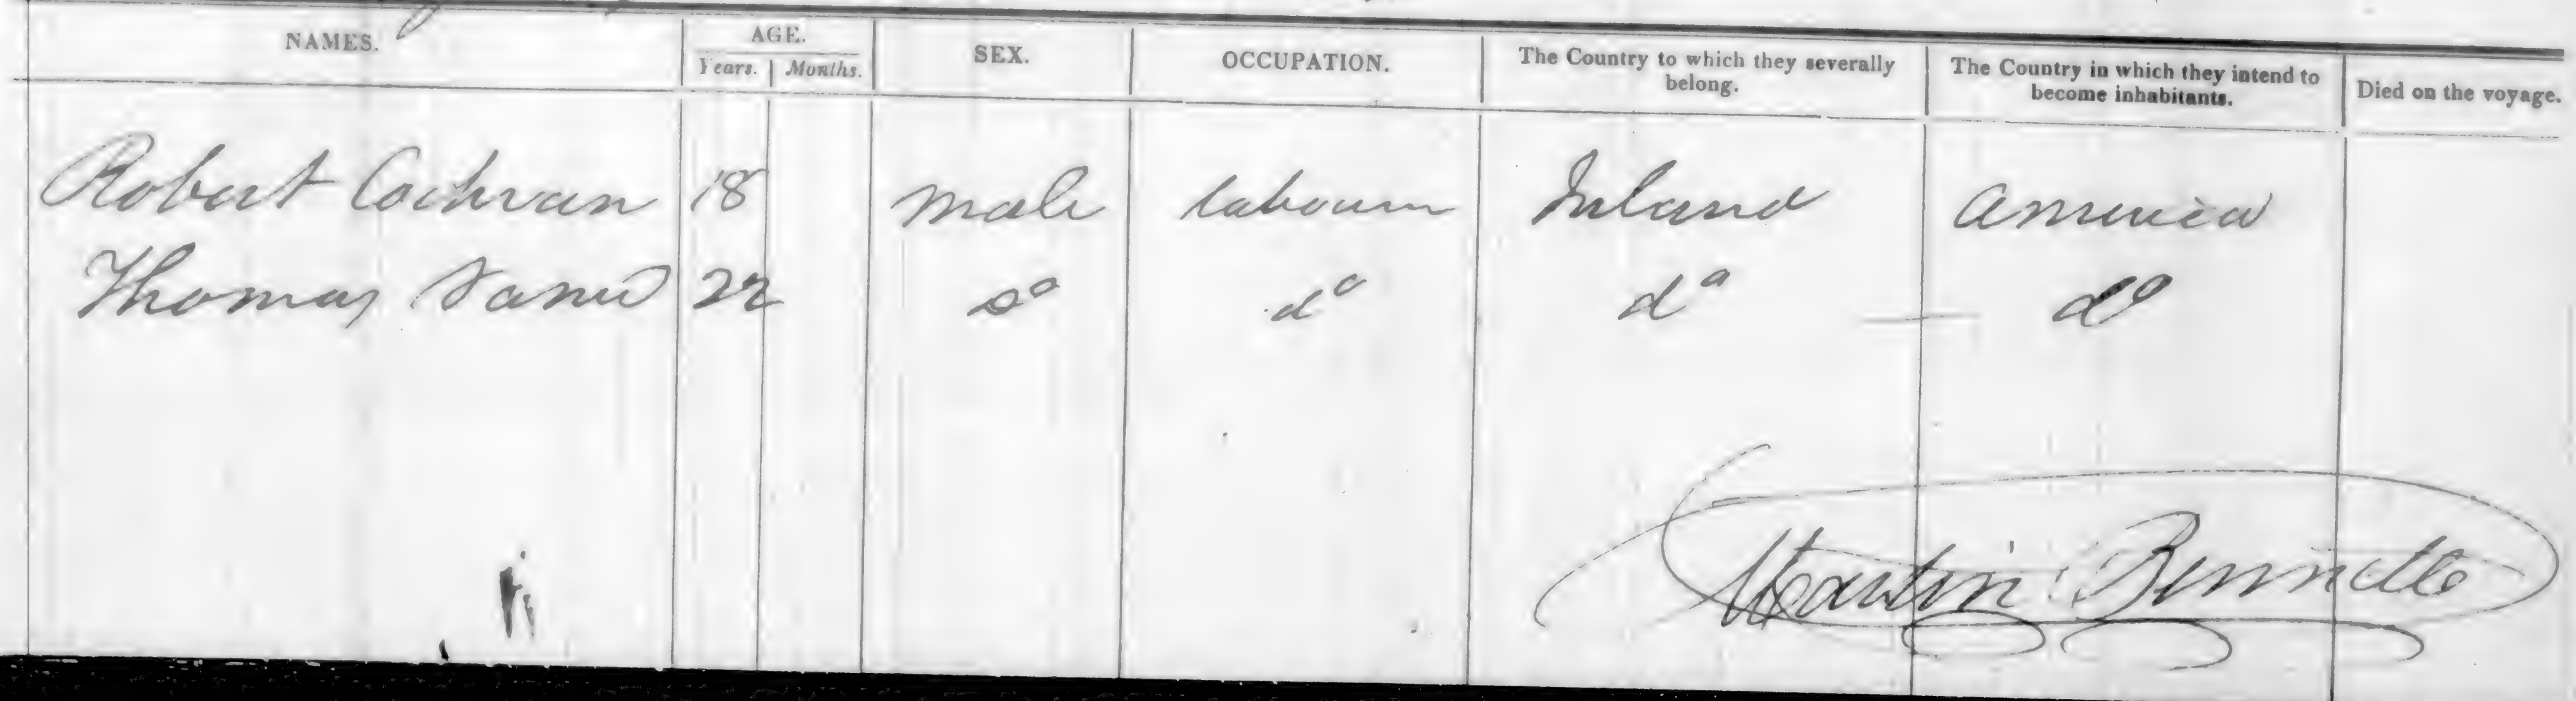 NAMES. AGE. SEX. OCCUPATION. The Country to which they severally belong. The Country in which they intend to become inhabitants. Died on the voyage.
Years. Months.
Robert Cochran 18 male labourer Ireland America
Thomas 22 do do do do
Martin Bennett